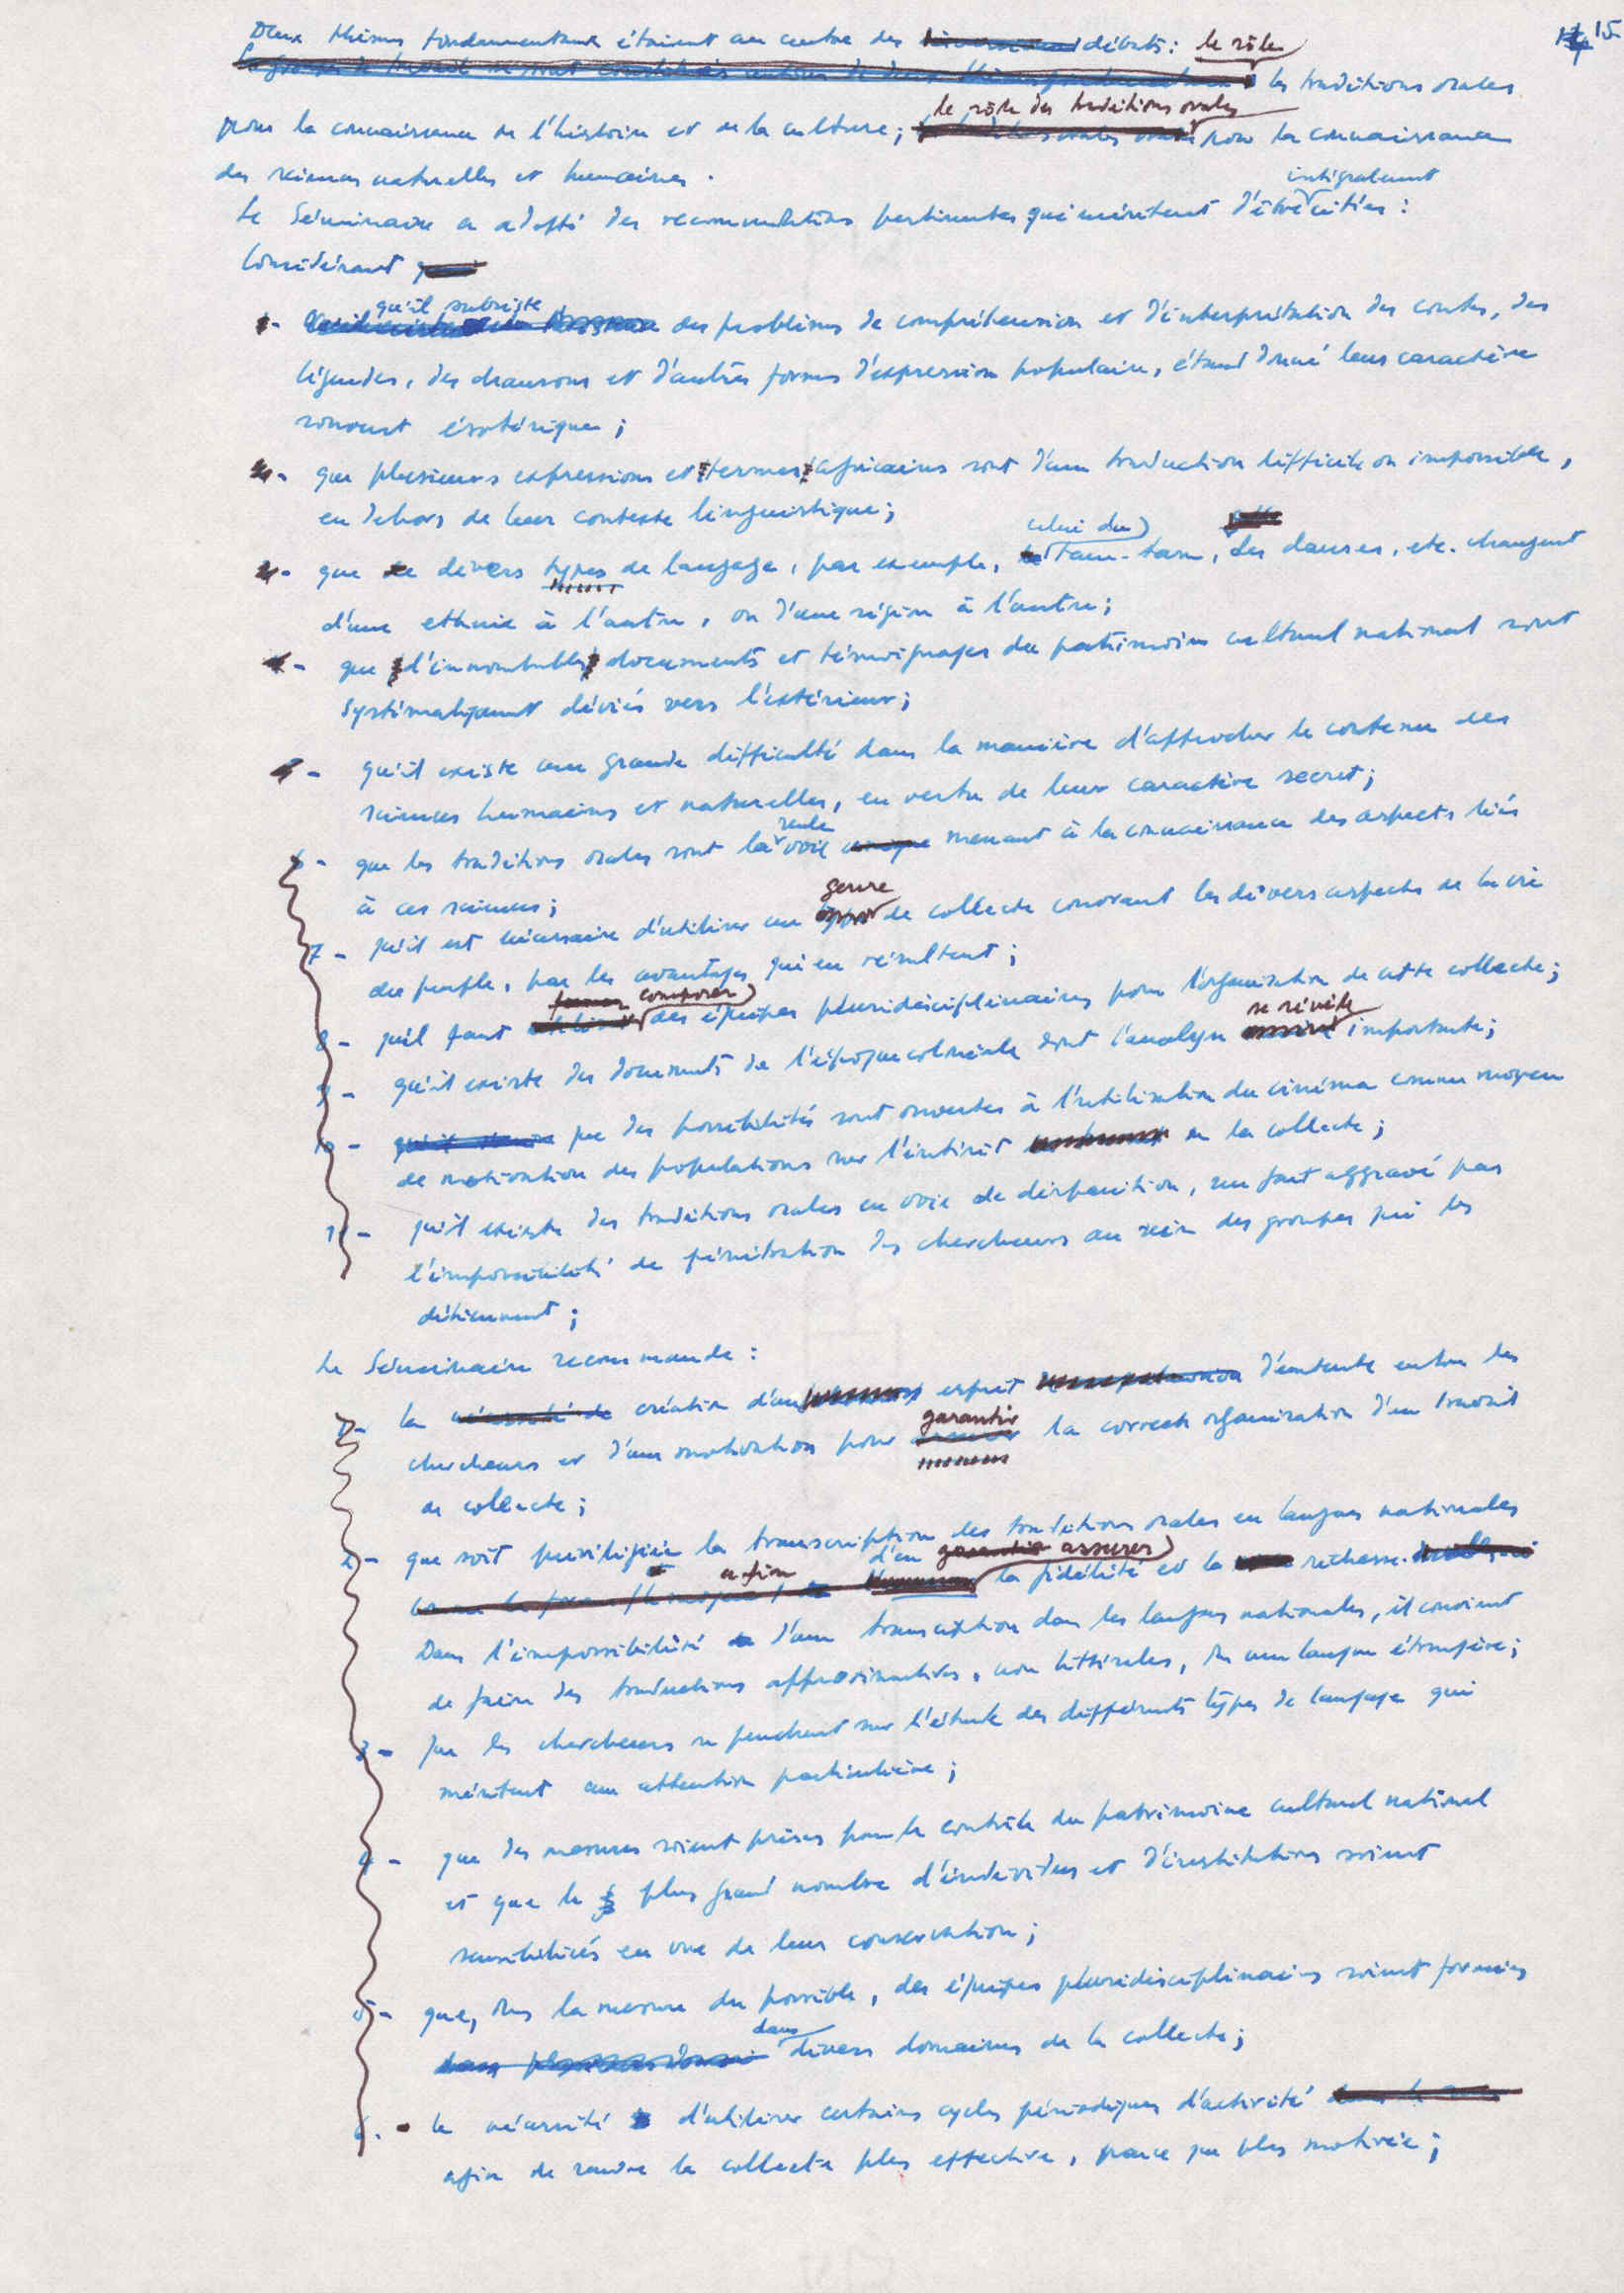 15
Deux thèmes fondamentaux étaient au centre des débats : le rôle
des traditions orales
pour la connaissance de l'histoire et de la culture ; le rôle des traditions orales pour la connaissance
des sciences naturelles et humaines .
Le Séminaire a adopté des recommandations pertinentes qui méritent d'être intégralement citées :
Considérant
qu'il subsiste des problèmes de compréhension et d'interprétation des contes, des
légendes, des chansons et d'autres formes d'expression populaire, étant donné leur caractère
souvent ésotérique ;
- que plusieurs expressions et termes africains sont d'une traduction difficile ou impossible,
en dehors de leur contexte linguistique ;
- que divers types de langage, par exemple, celui du tam-tam, des danses, etc. changent
d'une ethnie à l'autre, ou d'une région à l'autre ;
- que d'innombrables documents et témoignages du patrimoine culturel national sont
systématiquement déviés vers l'extérieur ;
- qu'il existe une grande difficulté dans la manière d'approcher le contenu des
sciences humaines et naturelles, en vertu de leur caractère secret ;
6 - que les traditions orales sont la seule voie menant à la connaissance des aspects liés
à ces sciences ;
7 - qu'il est nécessaire d'utiliser un genre de collecte couvrant les divers aspects de la vie
du peuple, par les avantages qui en résultent ;
8 - qu'il faut composer des équipes pluridisciplinaires pour l'organisation de cette collecte ;
9 - qu'il existe des documents de l'époque coloniale dont l'analyse se révèle importante ;
10 - que des possibilités sont ouvertes à l'utilisation du cinéma comme moyen
de motivation des populations sur l'intérêt de la collecte ;
11 - qu'il existe des traditions orales en voie de disparition, un fait aggravé par
l'impossibilité de pénétration des chercheurs au sein des groupes qui les
détiennent ;
Le Séminaire recommande :
1 - la création d'un esprit d'entente entre les
chercheurs et d'une motivation pour garantir la correcte organisation d'un travail
de collecte ;
2 - que soit privilégiée la transcription des traditions orales en langues nationales
afin d'en assurer la fidélité et la richesse.
Dans l'impossibilité d'une transcription dans les langues nationales, il convient
de faire des traductions approximatives, non littérales, en une langue étrangère ;
3 - que les chercheurs se penchent sur l'étude des différents types de langage qui
méritent une attention particulière ;
4 - que des mesures soient prises pour le contrôle du patrimoine culturel national
et que le plus grand nombre d'individus et d'institutions soient
sensibilisés en vue de leur conservation ;
5 - que, dans la mesure du possible, des équipes pluridisciplinaires soient formées
dans divers domaines de la collecte ;
6 - la nécessité d'utiliser certains cycles périodiques d'activité
afin de rendre la collecte plus effective, parce que plus motivée ;